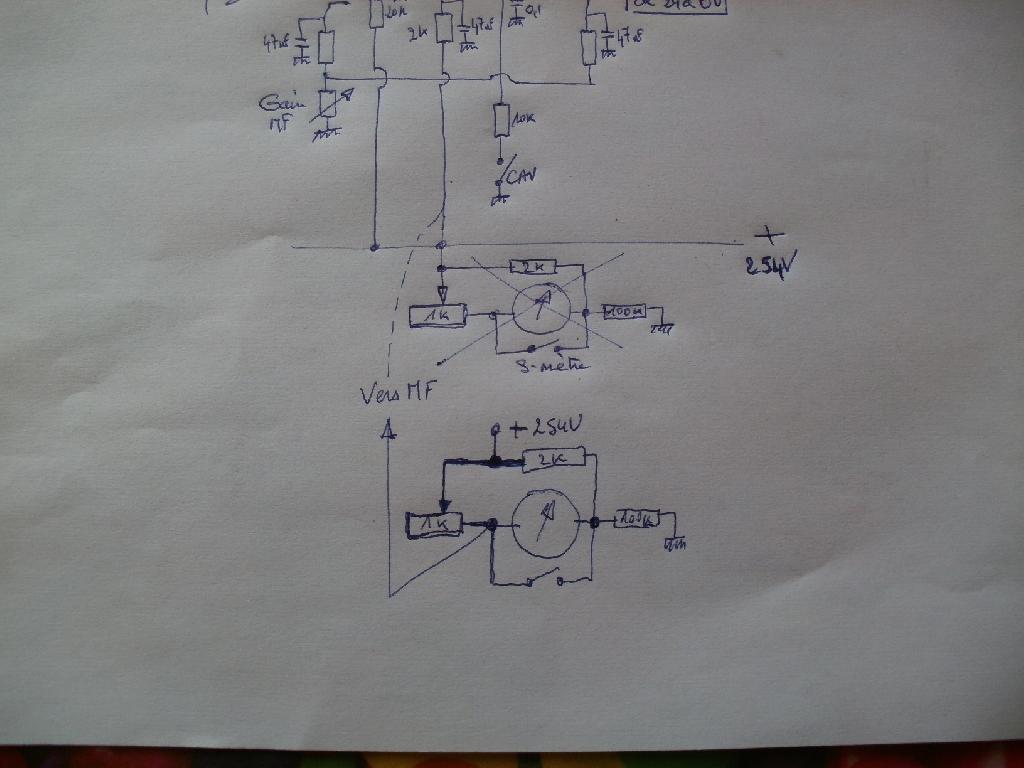 20K
47nF
2K
47nF
0,1
47nF
Gain
MF
10K
CAV
+
254V
2K
1K
100K
S-mètre
Vers MF
+ 254V
2K
1K
100K